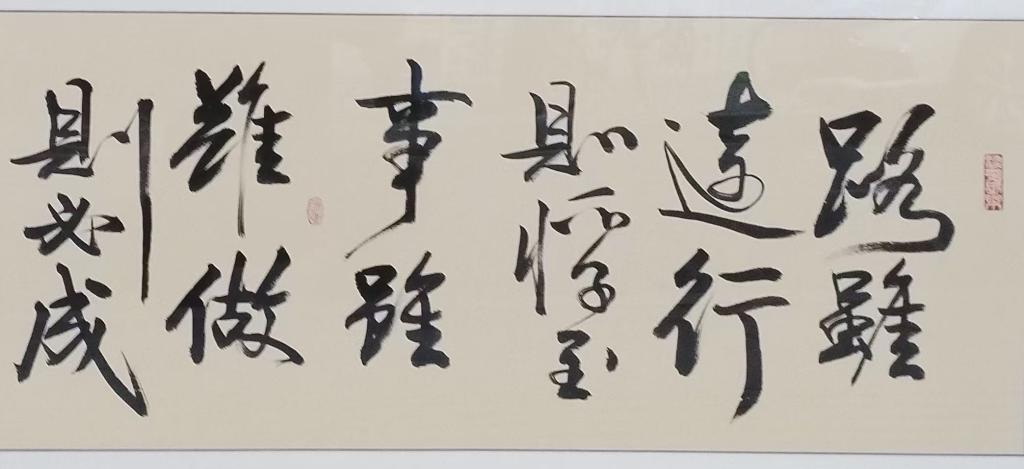 路雖
遠行
則将至
事雖
難做
則必成